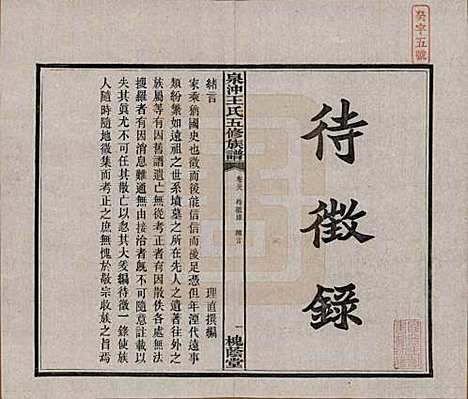 癸字五號
待徵錄
泉沖王氏五修族譜
緒言
一
槐蔭堂
緒言
理直撰編
家乘猶國史也徵而後能信信而後足憑但年湮代遠事
類紛繁如遠祖之世系墳墓之所在先人之遺著以往之
族屬等有因舊譜遺亡無從考正者有因散佚各處無法
搜羅者有因無由接洽者既不可隨意註載以
失其真尤不可任其散亡以忽其大爰編待徵一錄使族
人隨時隨地徵集而考正之庶無愧於敬宗收族之旨焉